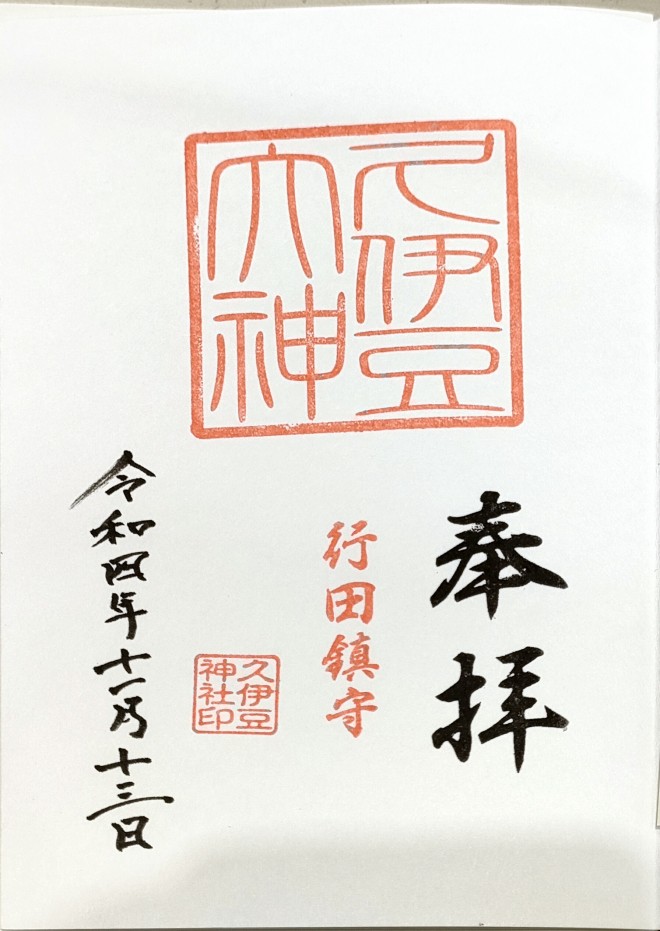 久伊豆
大神
奉拝
行田鎮守
久伊豆
神社印
令和四年十一月十三日